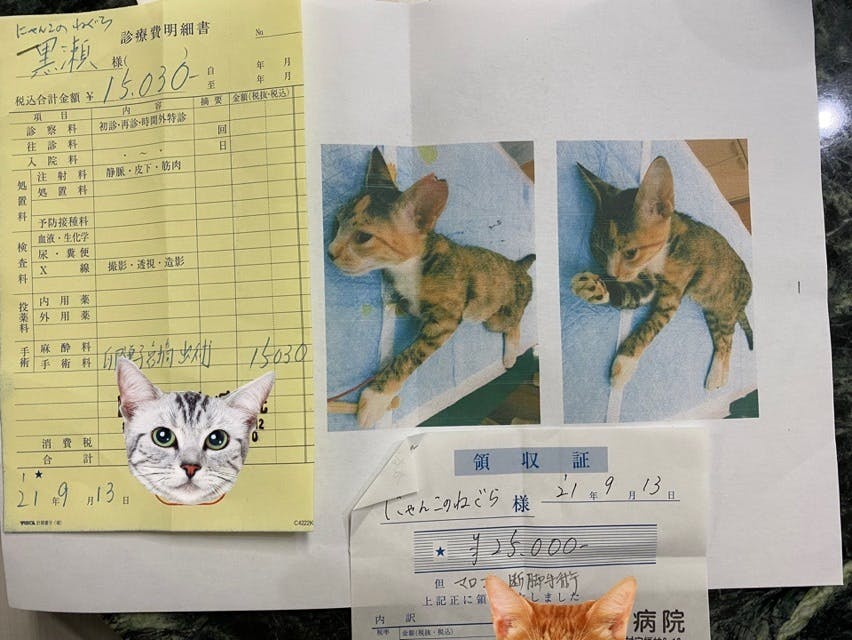 にゃんこのねぐら
診療費明細書
№
黒瀬 様( )
自 年 月
至 年 月
税込合計金額 ¥ 15,030-
項目 内容 摘要 金額(税抜・税込)
診察料 初診・再診・時間外特診 回
往診料 日
入院料 ・ ~ ・
処置料
注射料 静脈・皮下・筋肉
処置料
予防接種料
検査料
血液・生化学
尿・糞便
X線 撮影・透視・造影
投薬料
内用薬
外用薬
手術
麻酔料
手術料 卵巣子宮摘出術 15030
消費税
合計
★
21年 9月 13日
C4222K
領収証
にゃんこのねぐら 様 '21年 9月 13日
★ ¥25,000-
但 マロ 断脚手術
上記正に領 しました
内訳
税率 金額(税抜・税込)
病院